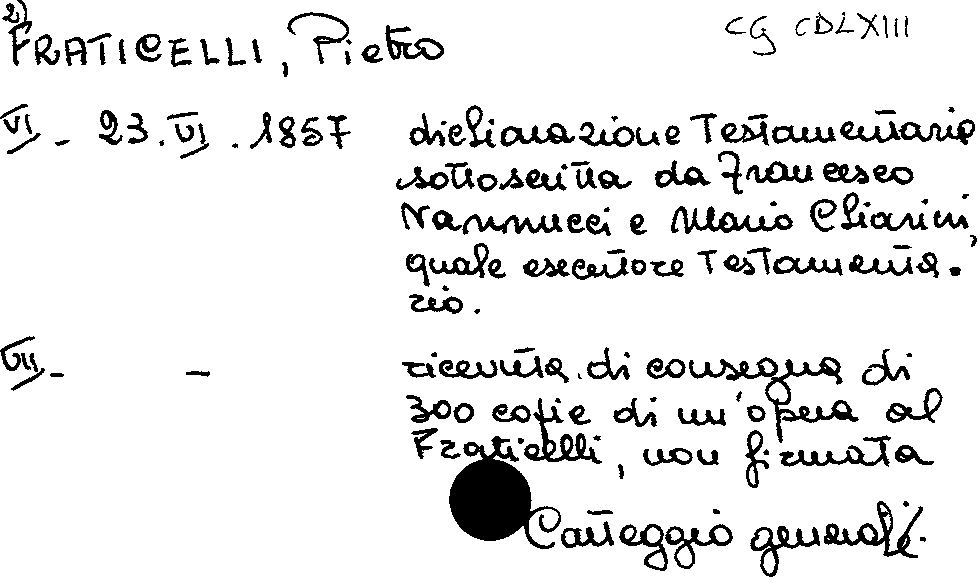 2)
FRATICELLI, Pietro CG CDLXIII
VI - 23.VI.1857 dichiarazione Testamentaria
sottoscritta da Francesco
Nannucci e Mario Chiarini,
quale esecutore Testamenta.
rio.
VII - - ricevuta di consegna di
300 copie di un'opera al
Fraticelli, non firmata
Carteggio generale.